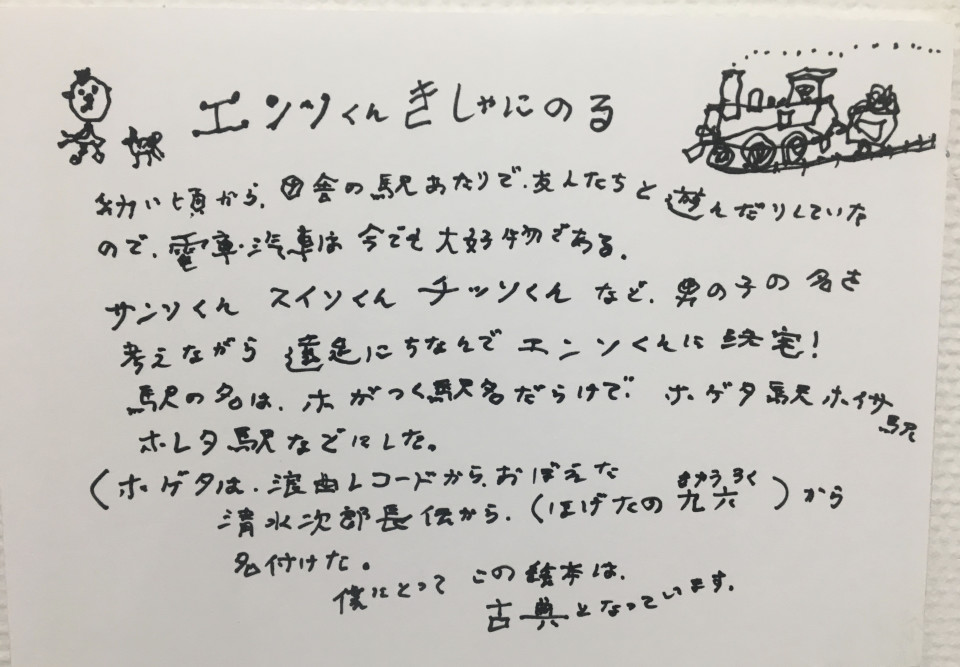 エンソくん きしゃにのる
幼い頃から、田舎の駅あたりで、友人たちと遊んだりしていた
ので、電車・汽車は今でも大好物である。
サンソくん スイソくん チッソくん など、男の子の名を
考えながら 遠足にちなんで エンソくんに決定!
駅の名は、ホがつく駅名だらけで ホゲタ駅 ホイサ駅
ホレタ駅などにした。
(ホゲタは、浪曲レコードから、おぼえた
清水次郎長伝から、(ほげたの 九六 きゅうろく)から
名付けた。
僕にとって この絵本は、
古典となっています。